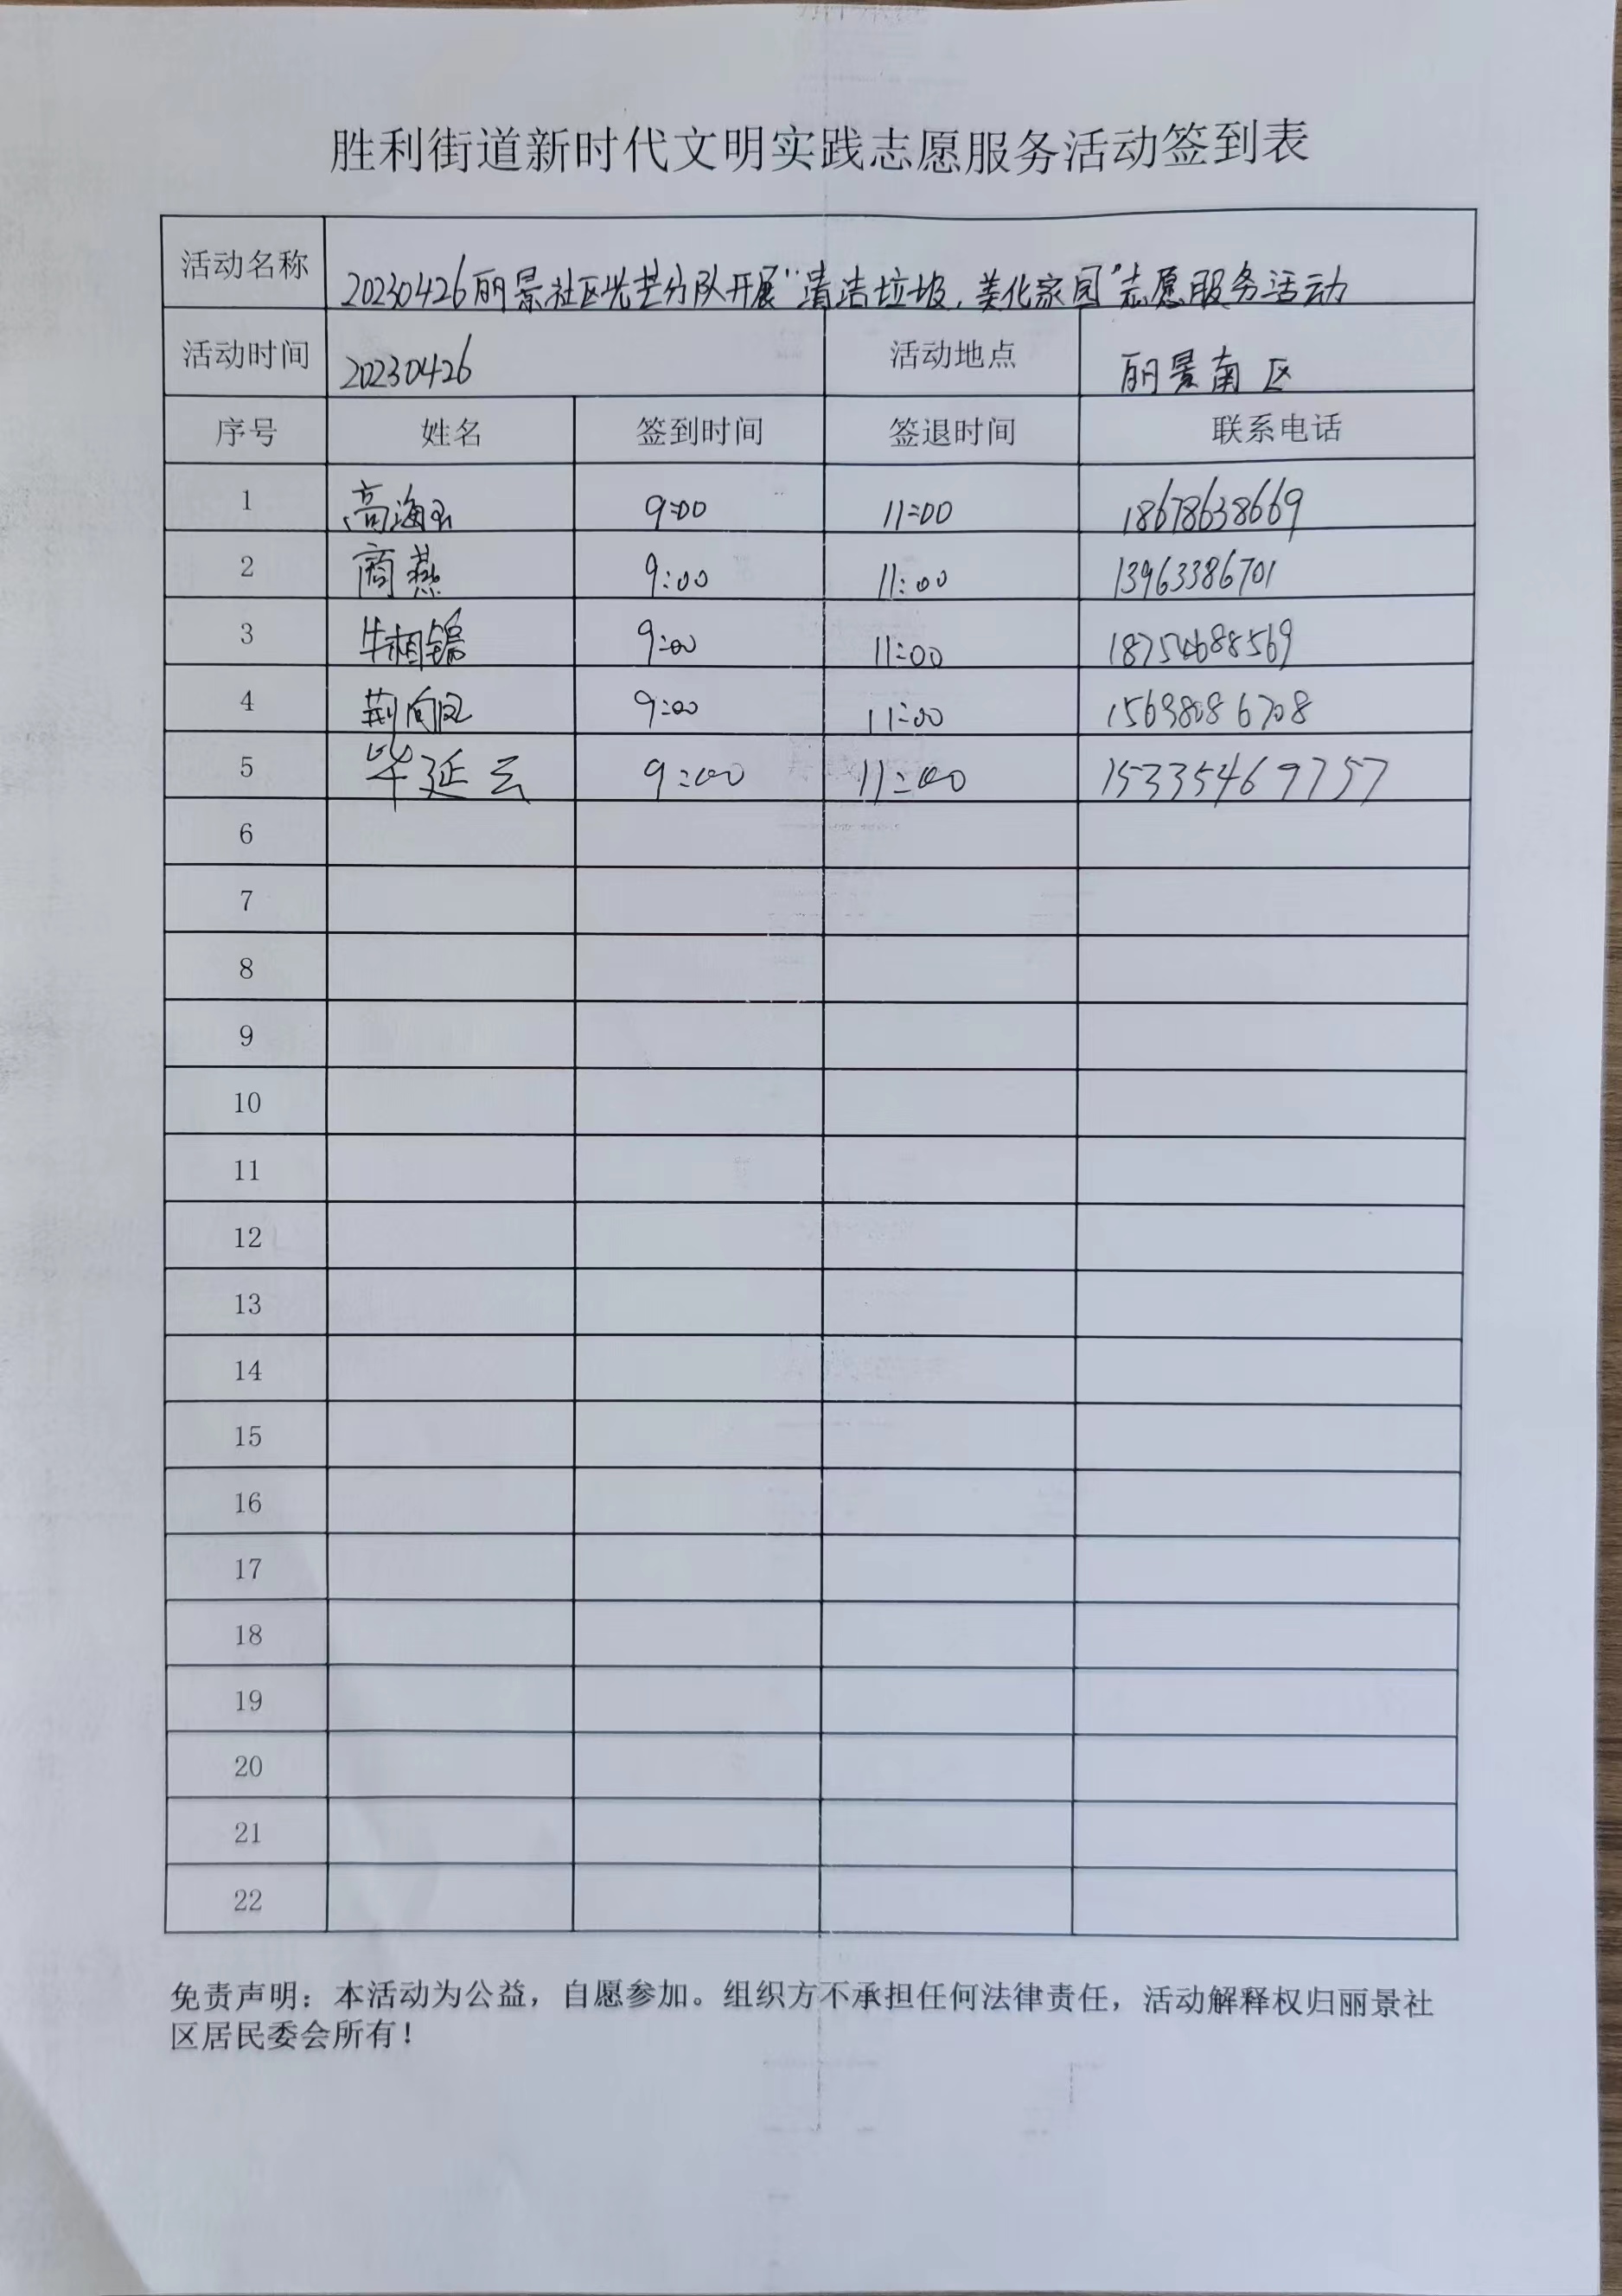 胜利街道新时代文明实践志愿服务活动签到表
活动名称 20230426丽景社区光芒分队开展“清洁垃圾，美化家园”志愿服务活动
活动时间 20230426 活动地点 丽景南区
序号 姓名 签到时间 签退时间 联系电话
1 高海玉 9:00 11:00 18678638669
2 商燕 9:00 11:00 13963386701
3 牛相锦 9:00 11:00 18754688569
4 荆向风 9:00 11:00 15698086708
5 毕延云 9:00 11:00 15335469757
6
7
8
9
10
11
12
13
14
15
16
17
18
19
20
21
22
免责声明：本活动为公益，自愿参加。组织方不承担任何法律责任，活动解释权归丽景社
区居民委会所有！